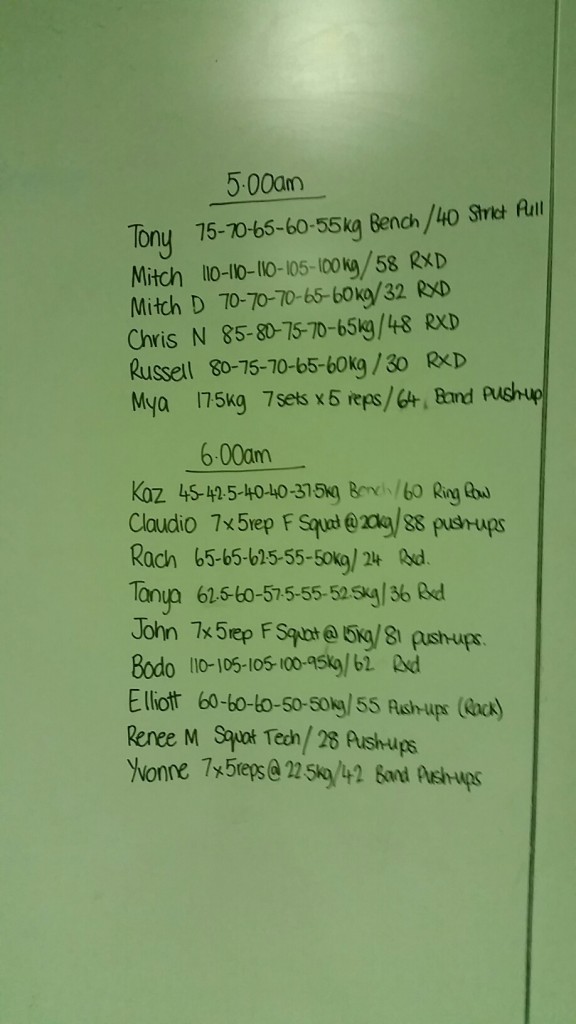 5.00am
Tony 75-70-65-60-55kg Bench/40 Strict Pull
Mitch 110-110-110-105-100kg/58 RXD
Mitch D 70-70-70-65-60kg/32 RXD
Chris N 85-80-75-70-65kg/48 RXD
Russell 80-75-70-65-60kg/30 RXD
Mya 17.5kg 7 sets x 5 reps/64 Band Push-up
6.00am
Kaz 45-42.5-40-40-37.5kg Bench/60 Ring Row
Claudio 7x5rep F Squat @ 20kg/88 push-ups
Rach 65-65-62.5-55-50kg/24 Rxd.
Tanya 62.5-60-57.5-55-52.5kg/36 Rxd
John 7x5rep F Squat @ 15kg/81 push-ups.
Bodo 110-105-105-100-95kg/62 Rxd
Elliott 60-60-60-50-50kg/55 Push-ups (Rack)
Renee M Squat Tech/28 Push-ups
Yvonne 7x5reps @ 22.5kg/42 Band Push-ups